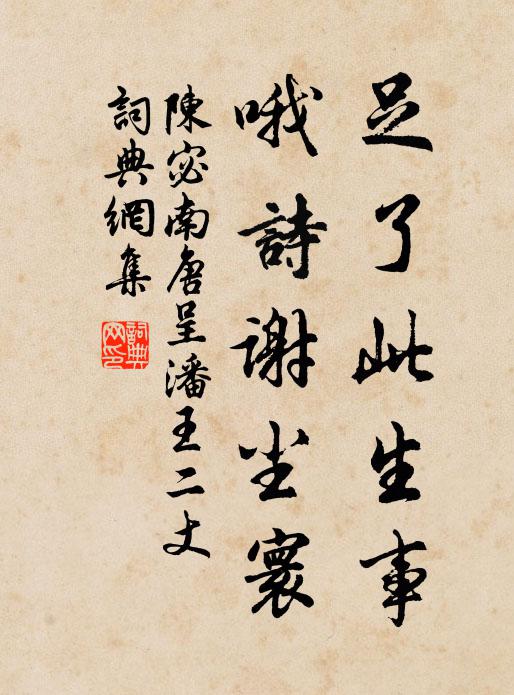 足了此生事
哦詩謝尘寰
陳宓南唐呈潘王二丈
詞典網集
詞典网印